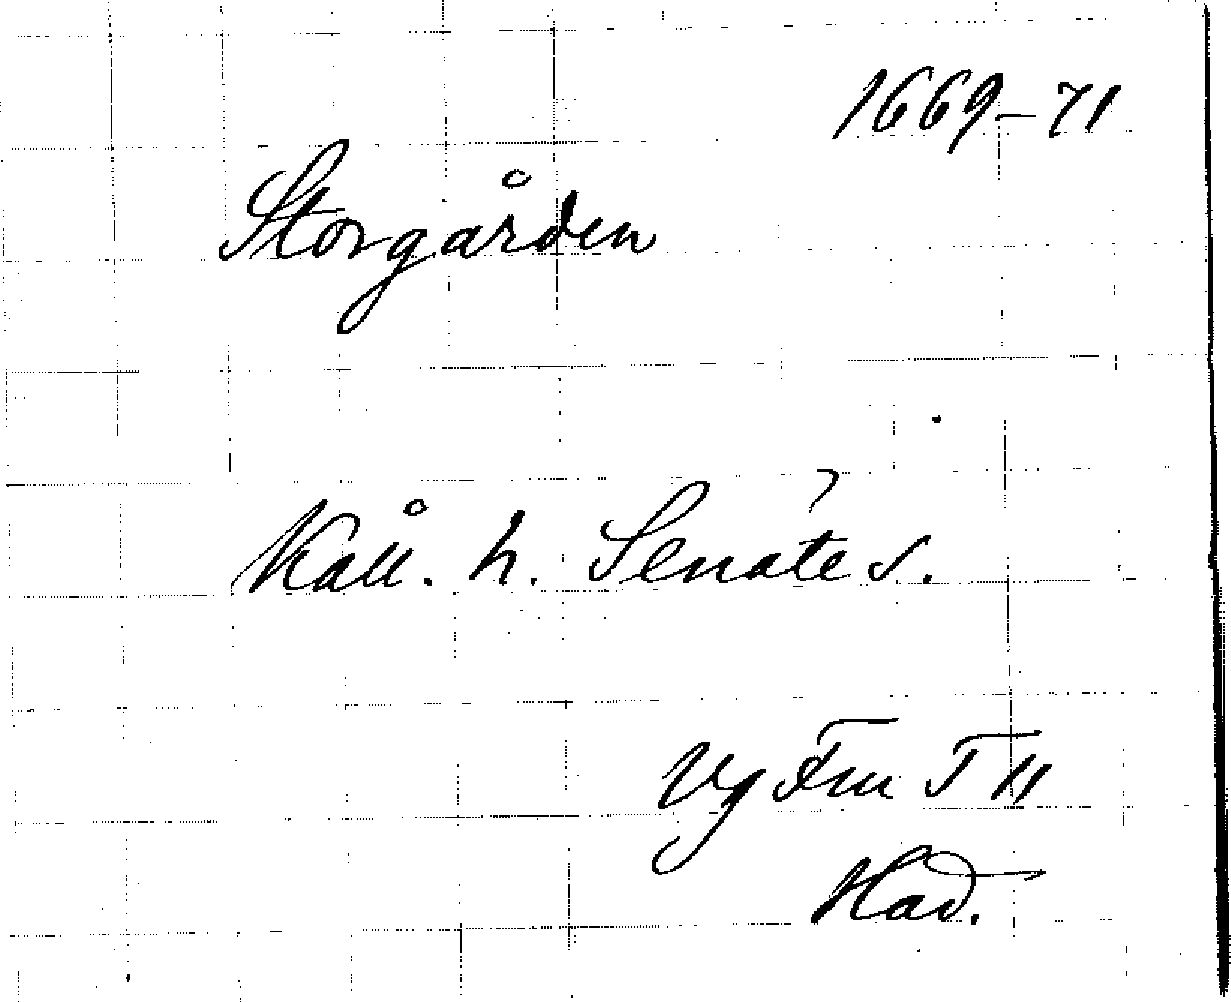 1669–71
Storgården
Kåll. h. Senåtes.
Vg Fru T 11
Had.